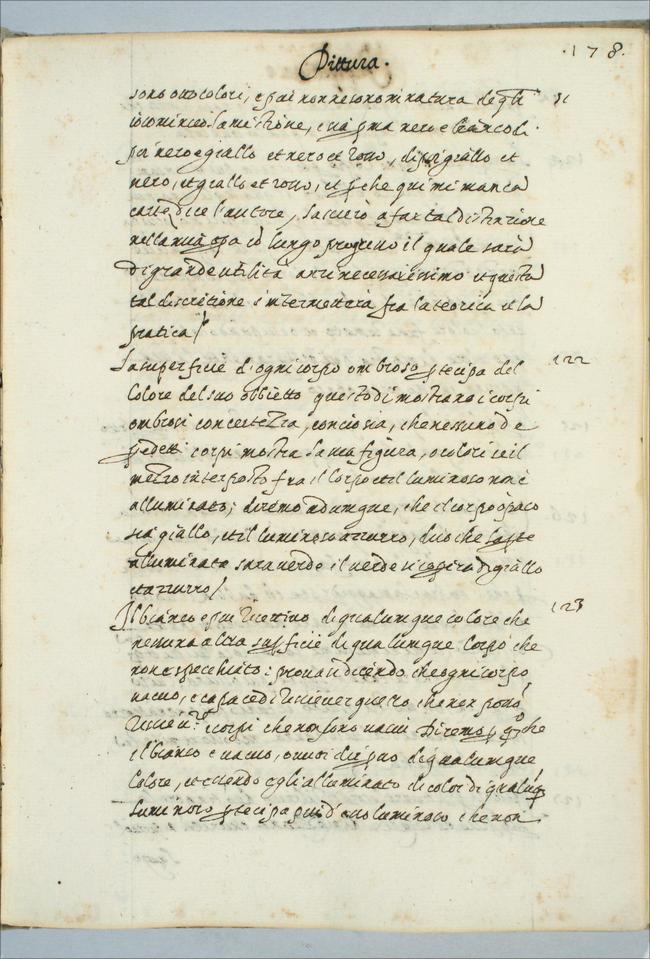 Pittura.
.178.
sono otto colori, e più non ne sono in natura de gl'
io comincerò la mistione, e sia pma nero e bianco di
poi nero e giallo et nero et rosso, di poi giallo et
nero, et giallo et rosso, et p che qui mi manca
carta dice l'autore, lascierò a far tal distinzione
nella mia opa cō lungo progresso il quale sarà
di grande utilità anzi necessarissimo et questa
tal descritione s'intermetterà fra la teorica et la
pratica/
La superficie d'ogni corpo ombroso ptecipa del 122
Colore del suo obbietto questo dimostrano i corpi
ombrosi con certezza, conciosia, che nessuno de
pedetti corpi mostra la sua figura, o colore se il
mezzo interposto fra il corpo et il luminoso non è
alluminato; diremo adunque, che il corpo opaco
sia giallo, et il luminoso azzurro, dico che la pte
alluminata sarà verde il verde si di giallo
et azzurro/
Il bianco e più recettivo di qualunque colore che 123
nessuna altra supficie di qualunque corpo che
non è specchiato: provasi dicendo che ogni corpo
vacuo, e capace di ricievere quello che non pono
i corpi che non sono vacui Diremo p qº che
il bianco è vacuo, o vuoi dir pivo di qualunque
colore, et essendo egli alluminato di color di qualūq
luminoso ptecipa più d'esso luminoso che non